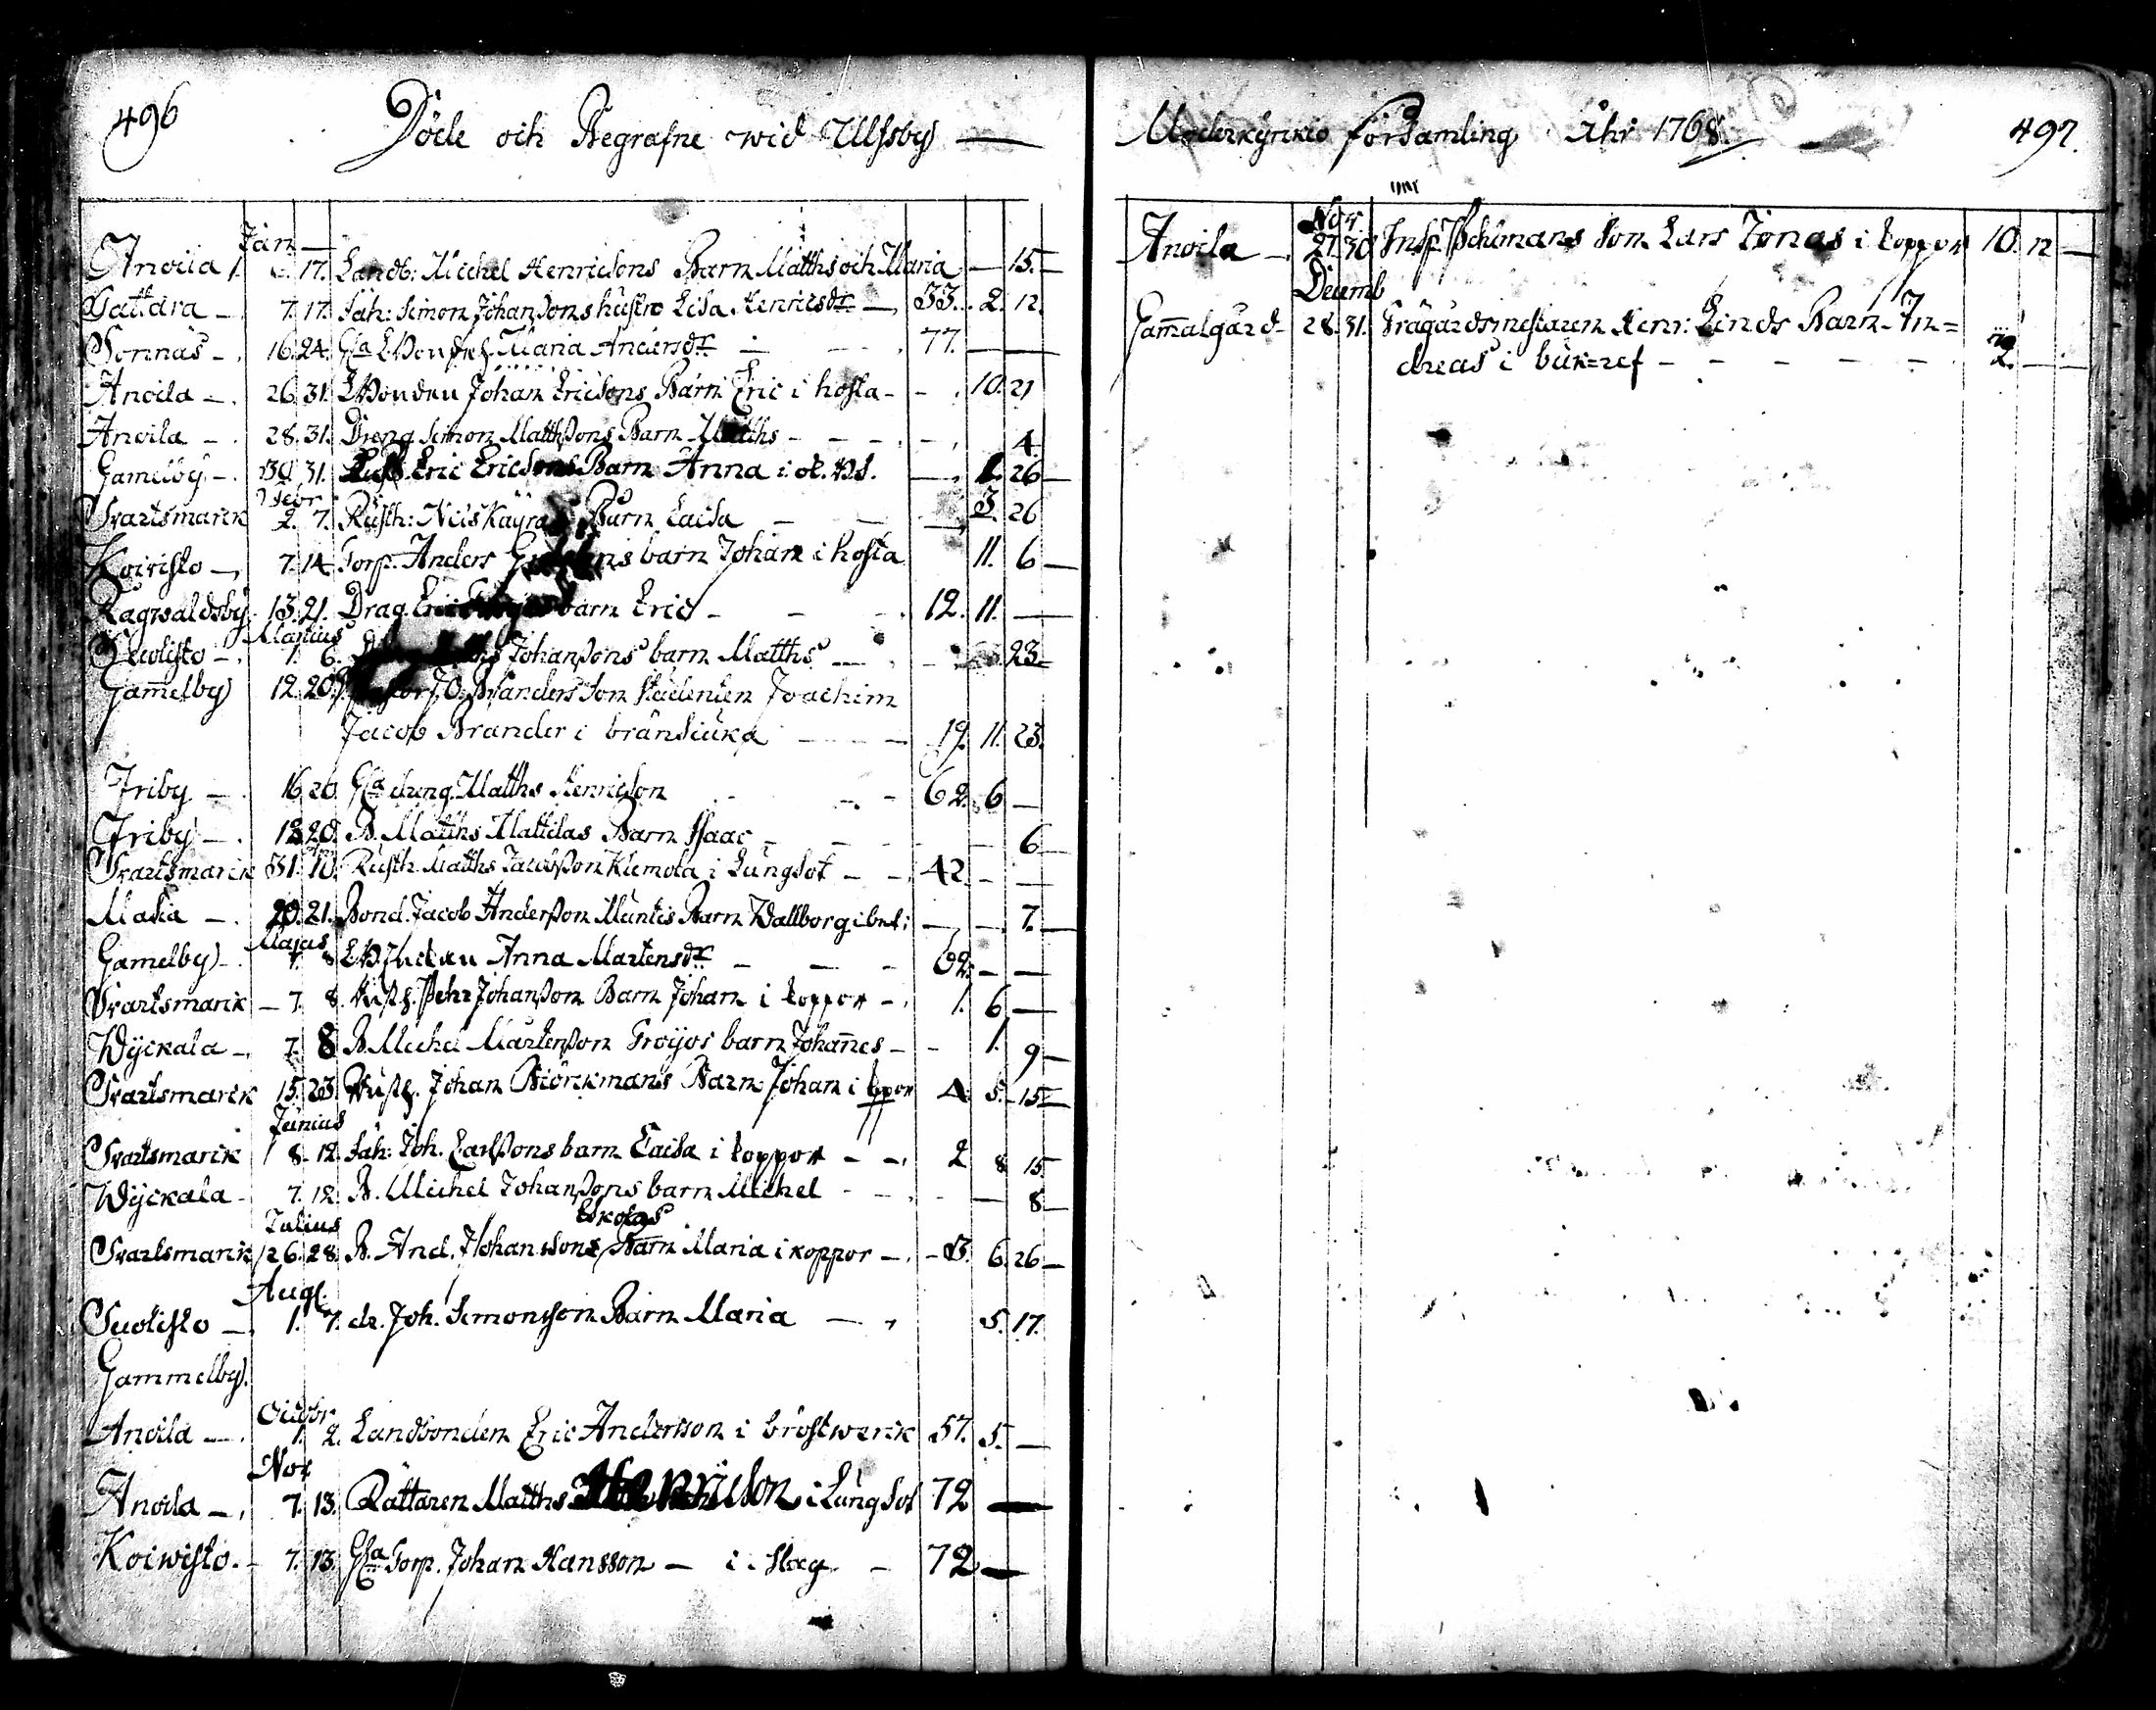 496
Döde och Begrafne wid Ulfsby —
Jan —
Anoila 1. 17. Landb: Michel Henricsons Barn Matths och Maria — 15. —
Gattara — 7. 17. Säh: Simon Johanßons hustro Lisa Henricsdr — 33. 2. 12.
Sonnäs — 16. 24. Gla Maria Andersdr — 77. — —
Anoila — 26. 31. Johan Ericsons Barn Eric i hosta — 10. 21
Anoila — 28. 31. Dreng Simon Matthßons Barn Matths — — 4.
Gamelby — 30. 31. Eric Ericsons Barn Anna — 26 —
Febr
Svartsmarck 2. 7. Rusth: Nils Barn Caisa — 3. 26
Koivisto — 7. 14. Torp. Anders barn Johan i hosta 11. 6 —
Ragwaldsby 13. 21. Drag. Eric barn Eric — 12. 11. —
Martius
Suolisto — 1. 6. Johanßons barn Matths — 23 —
Gam̄elby 12. 20. Branders Son Studenten Joachim
Jacob Brander i bränsiuka — 19. 11. 23.
Friby — 16. 20. Gla dreng Matths Henricson — 62. 6 —
Friby — 18. 20. B. Matths Mattilas Barn Isaac — 6 —
Svartsmarck 31. 10. Rusth. Matths Jacobßon Klemola i Lungsot — 42. — —
Masia — 20. 21. Bond. Jacob Anderßon Muntis Barn Wallborg — 7. —
Majus
Gamelby — 7. 8 Anna Martensdr — 62. — —
Svartsmarck — 7. 8. Pehr Johanßon Barn Johan i koppor — 1. 6 —
Wyckala — 7. 8 B. Michel Mårtenßon Troijos barn Johan̄es — 1. 9 —
Svartsmarck 15. 23. Johan Biörckmans Barn Johan i kopor 4. 5. 15 —
Junius
Svartsmarck 8. 12. Säh: Joh. Larßons barn Caisa i koppor — 2 8 15.
Wyckala — 7. 12. B. Michel Johanßons barn Michel — — 8 —
Julius Eskolas
Svartsmarck 26. 28. B. And. Johanssons Barn Maria i koppor — 3. 6. 26 —
Aug.
Suolisto — 1. 7. dr. Joh. Simonsson Barn Maria — 5. 17.
Gammelby.
Octobr
Anoila — 1. 2. Landbonden Eric Andersson i bröstwerck 57. 5. —
Nov
Anoila — 7. 13. Rättaren Matths Henricson i Lungsot 72 —
Koiwisto. — 7. 13. Gla Torp. Johan Hansson — i Slag — 72 —
Moderkyrckio församling Åhr 1768.
497.
Nov.
Anoila — 27. 30 Insp. Pehlmans Son Lars Jonas i koppor 10. 11 —
Decemb
Gam̄algård — 28. 31. Trägårdsmestaren Henr: Linds Barn An=
dreas i buk=ref — — — — — 2. —